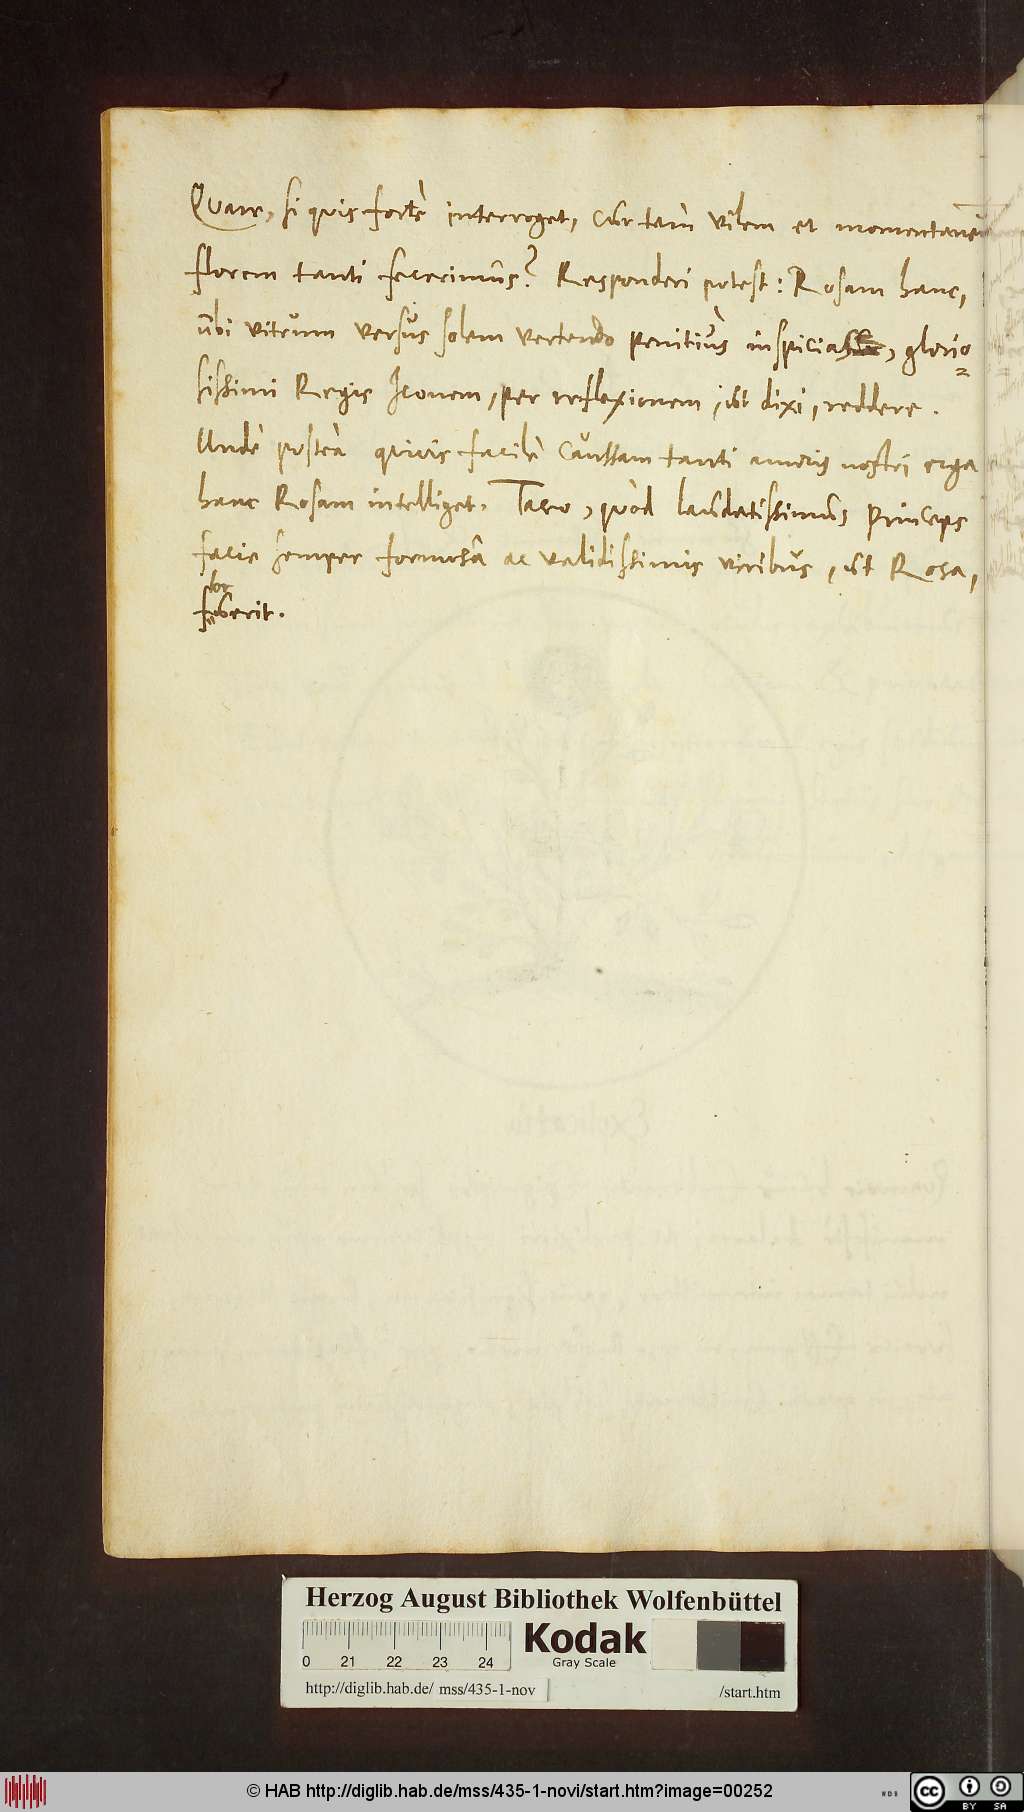 Quare, si quis fortè interroget, cur tam vilem et momentaneū
florem tanti fecerimus? Responderi potest: Rosam hanc,
ubi vitrum versus solem vertendo penitius inspicias, glorio=
sissimi Regis Iconem, per reflexionem, ut dixi, reddere.
Undè posteà quivis facilè caussam tanti amoris nostri erga
hanc Rosam intelliget. Taceo, quòd laudatissimus Princeps
facie semper formosâ ac validissimis viribus, ut Rosa,
floruerit.
Herzog August Bibliothek Wolfenbüttel
0 21 22 23 24
Kodak
Gray Scale
http://diglib.hab.de/ mss/435-1-nov /start.htm
© HAB http://diglib.hab.de/mss/435-1-novi/start.htm?image=00252
WDB
cc BY SA